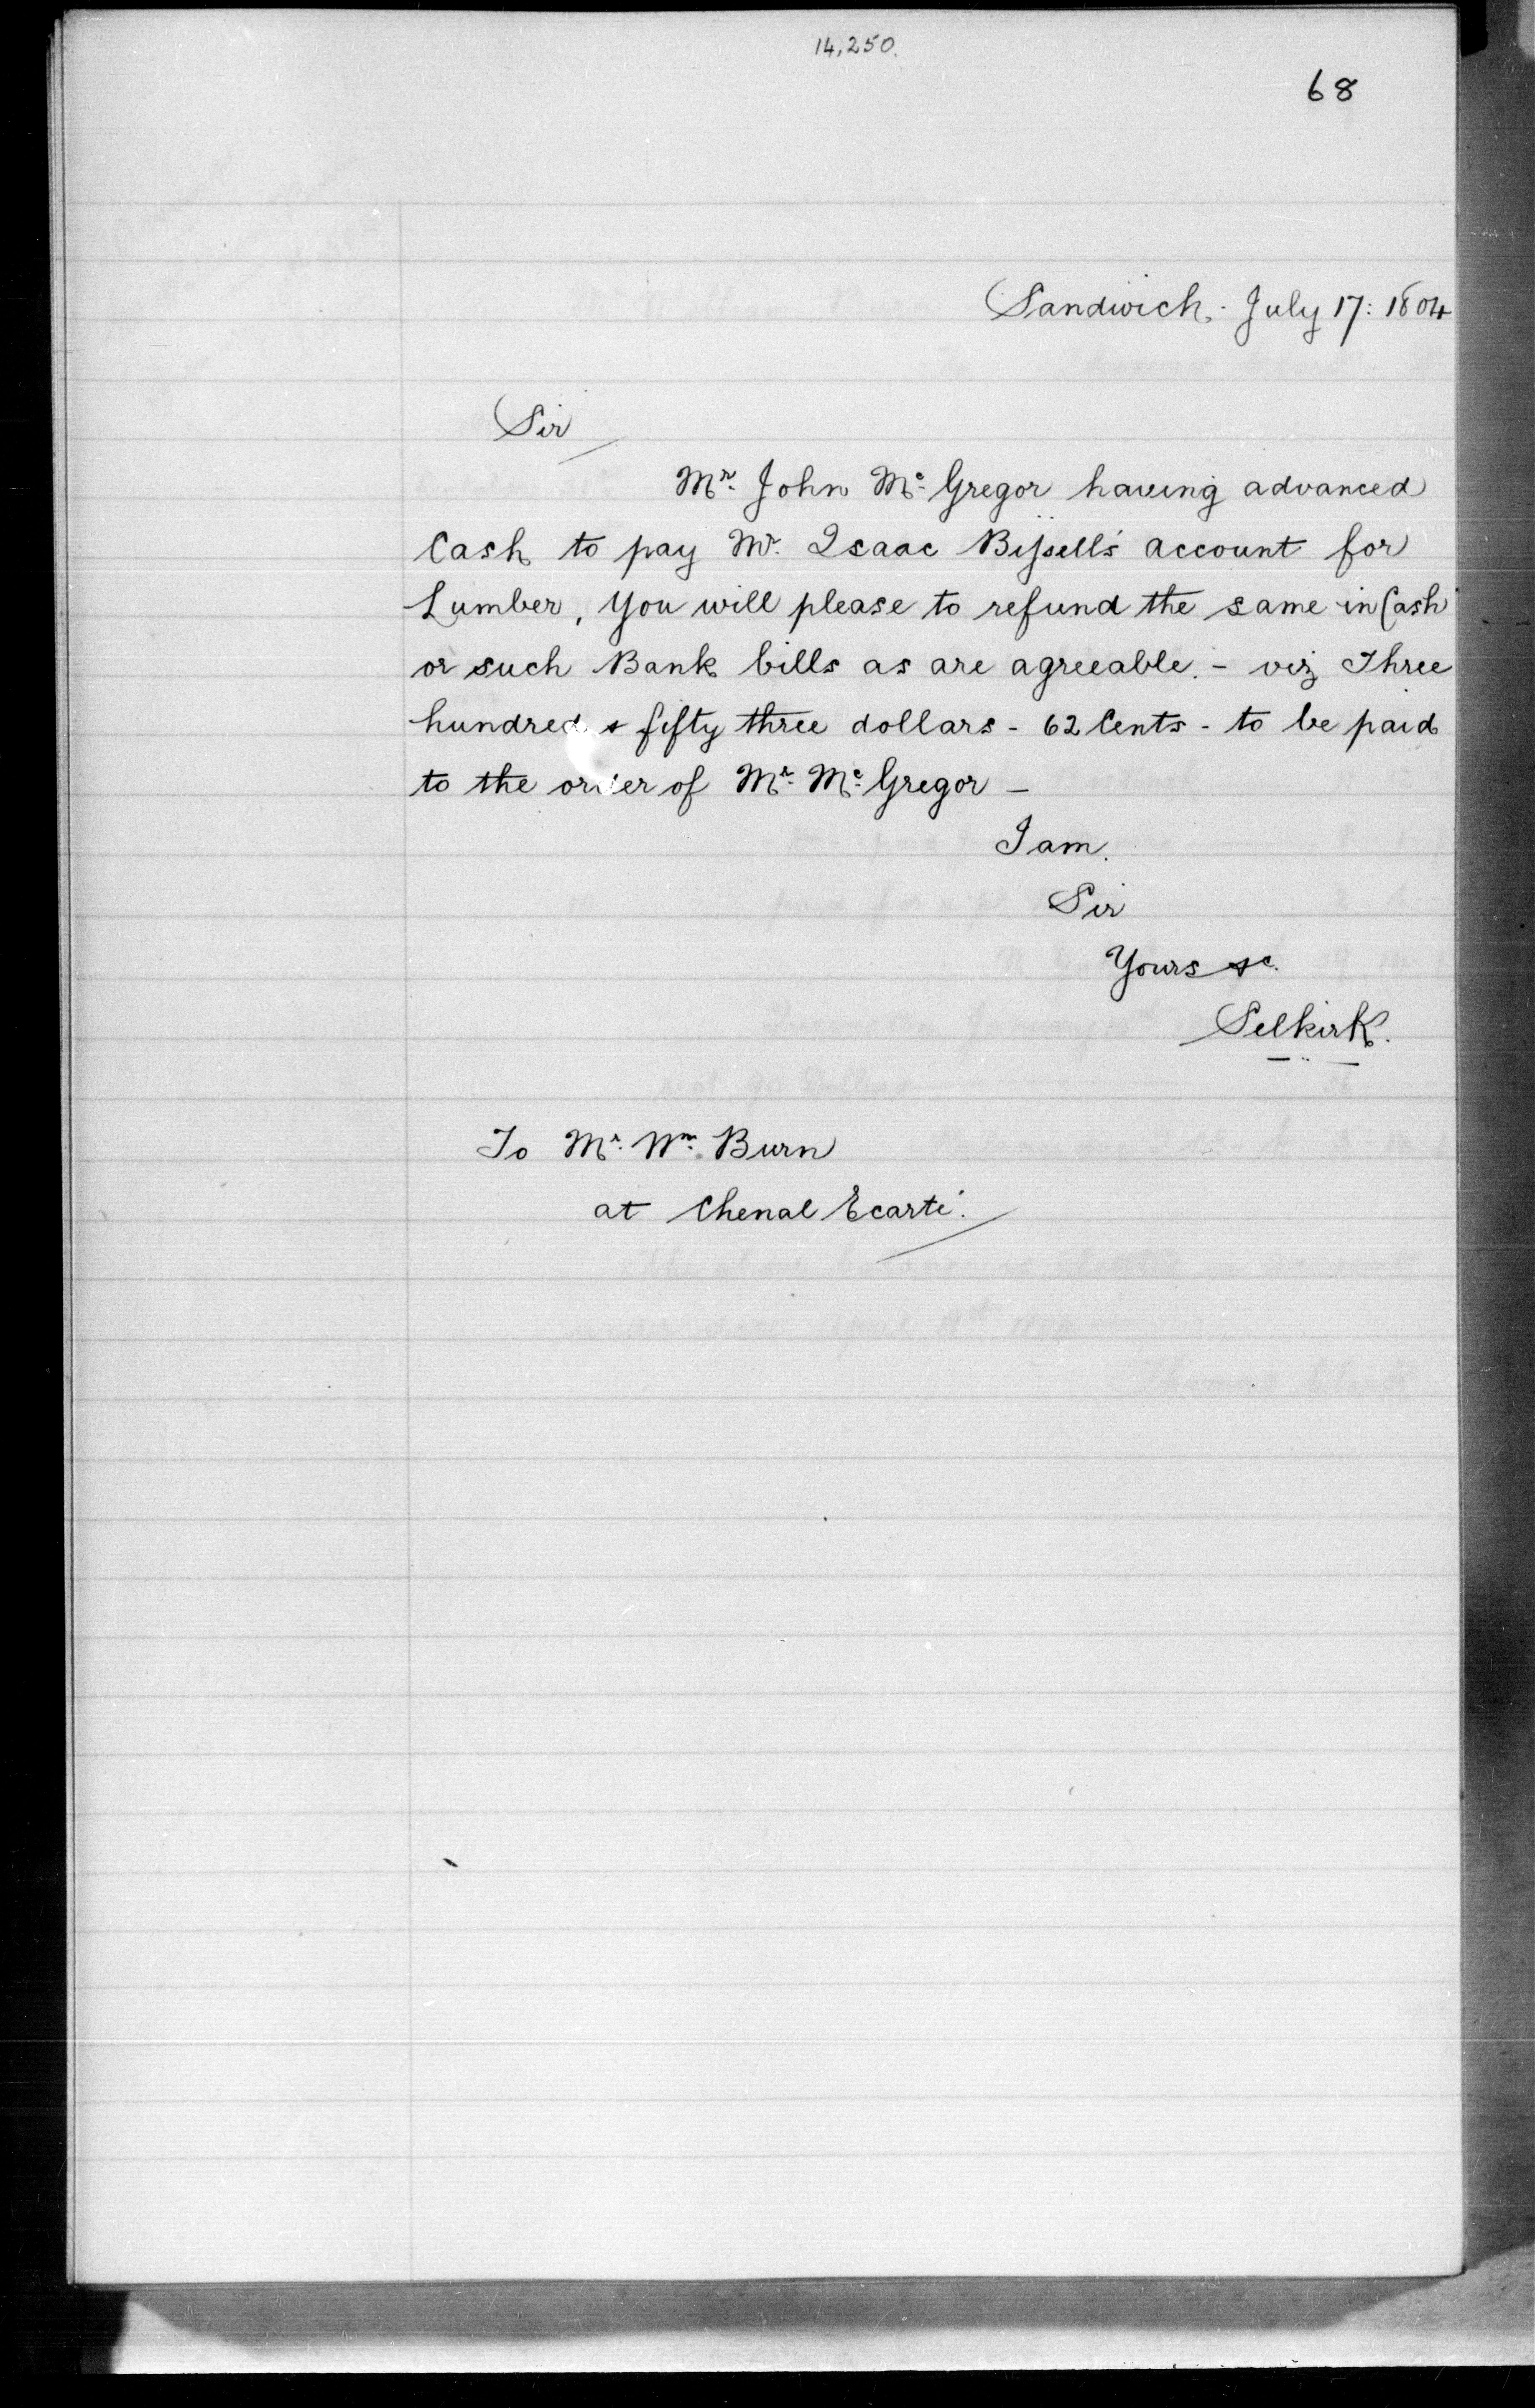 14,250.
68
Sandwich. July 17: 1804
Sir
Mr. John Mc. Gregor having advanced
Cash to pay Mr. Isaac Bissell's account for
Lumber, You will please to refund the same in Cash
or such Bank bills as are agreeable. - viz Three
hundred & fifty three dollars - 62 Cents - to be paid
to the order of Mr. Mc. Gregor -
I am.
Sir
Yours &c.
Selkirk.
To Mr. Wm. Burn
at Chenal Ecarté.